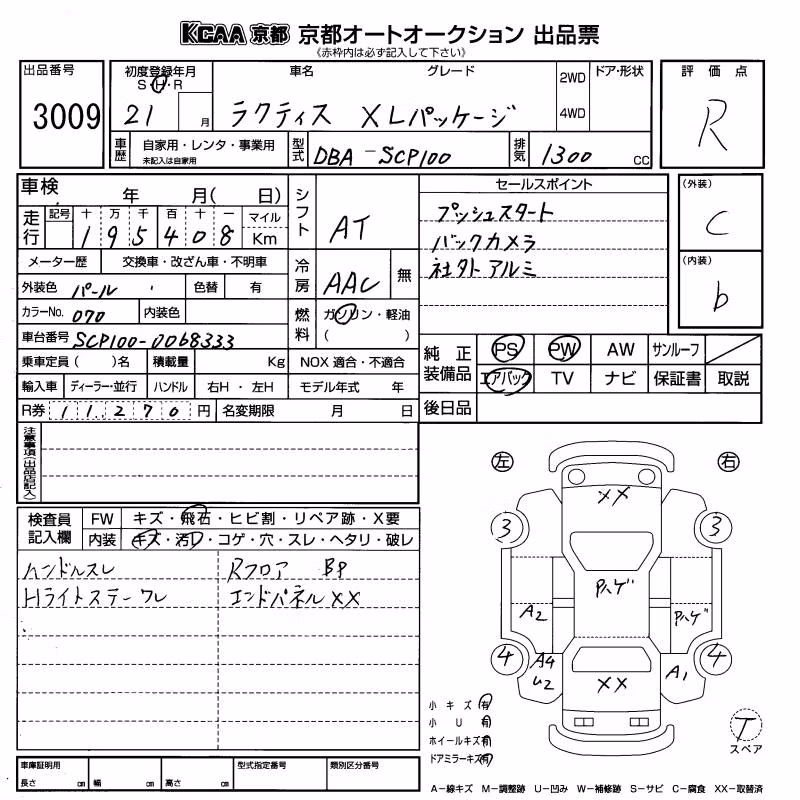 KCAA 京都 京都オートオークション 出品票
《赤枠内は必ず記入して下さい》
出品番号
3009
初度登録年月
S・H・R
21 月
車名 グレード
ラクティス XLパッケージ
2WD
4WD
ドア・形状
評価点
R
車歴
自家用・レンタ・事業用
未記入は自家用
型式
DBA-SCP100
排気
1300 cc
車検 年 月( 日)
走行
記号 十 万 千 百 十 一
1 9 5 4 0 8
マイル
Km
メーター歴 交換車・改ざん車・不明車
外装色 パール 色替 有
カラーNo. 070 内装色
車台番号 SCP100-0068333
乗車定員 ( )名 積載量 Kg NOX 適合・不適合
輸入車 ディーラー・並行 ハンドル 右H・左H モデル年式 年
R券 11,270 円 名変期限 月 日
シフト
AT
冷房
AAC
無
燃料
ガソリン・軽油
( )
セールスポイント
プッシュスタート
バックカメラ
社外アルミ
(外装)
C
(内装)
b
純正装備品
PS PW AW サンルーフ
エアバック TV ナビ 保証書 取説
後日品
注意事項(出品店記入)
検査員記入欄
FW キズ・飛石・ヒビ割・リペア跡・X要
内装 キズ・汚れ・コゲ・穴・スレ・ヘタリ・破レ
ハンドルスレ
Hライトステーワレ
Rフロア BP
エンドパネルXX
左 右
XX
3 3
Pハゲ
A2 Pハゲ
4 4
A4
U2
A1
XX
小キズ 有
小U 有
ホイールキズ 有
ドアミラーキズ 有
T
スペア
車庫証明用
長さ cm 幅 cm 高さ cm
型式指定番号 類別区分番号
A-線キズ M-調整跡 U-凹み W-補修跡 S-サビ C-腐食 XX-取替済